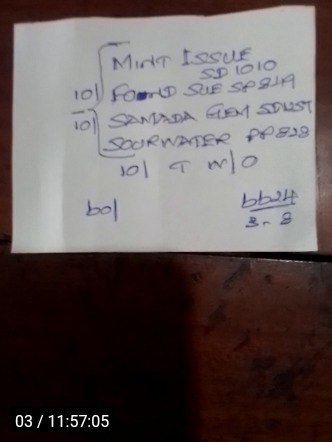 MINT ISSUE
SD 1010
101 FOUND SUE SP849
101 SAMADA GEM
SOURWATER PP828
101 T W/O
bol
bb24
3-8
03 / 11:57:05